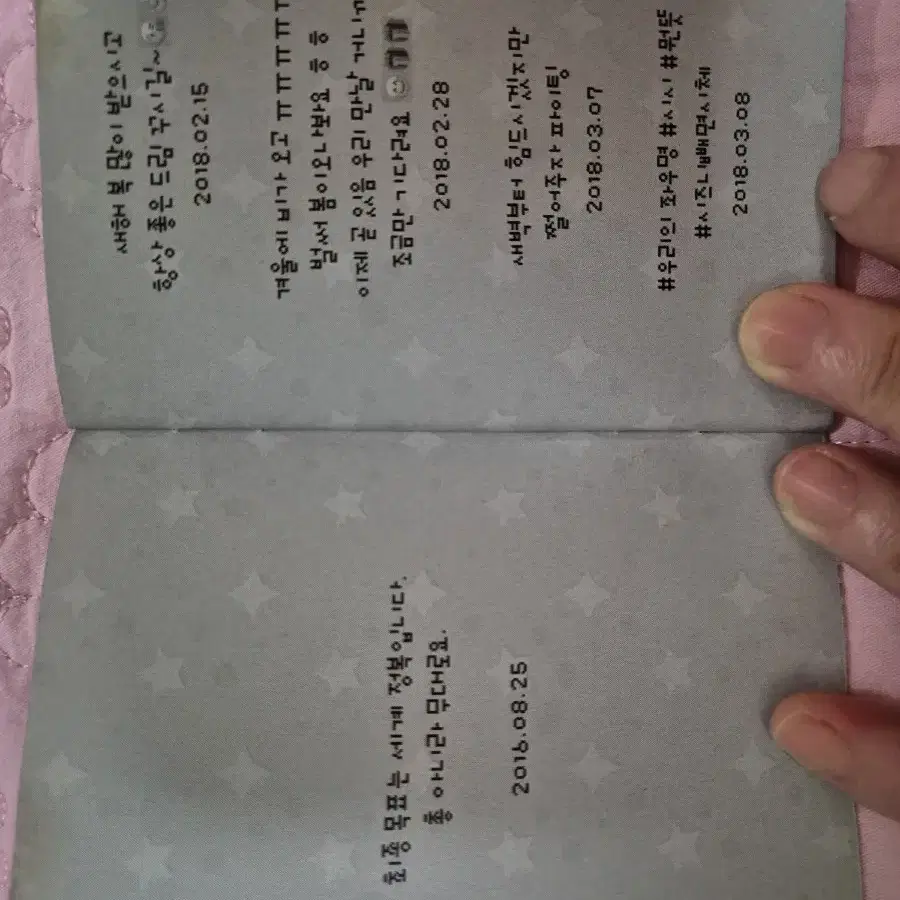 최종 목표는 세계 정복입니다.
총 아니라 무대로요.
2016.08.25
새해 복 많이 받으시고
항상 좋은 드림 꾸시길~
2018.02.15
겨울에 비가 오고 ㅠㅠㅠㅠ
벌써 봄이오나봐요
이제 곧 있음 우리 만날
조금만 기다려요
2018.02.28
새벽부터 힘드시겠지만
쩔어주자 파이팅
2018.03.07
#우리의 좌우명 #시시 #뭔뜻
#시즈니빼면시체
2018.03.08